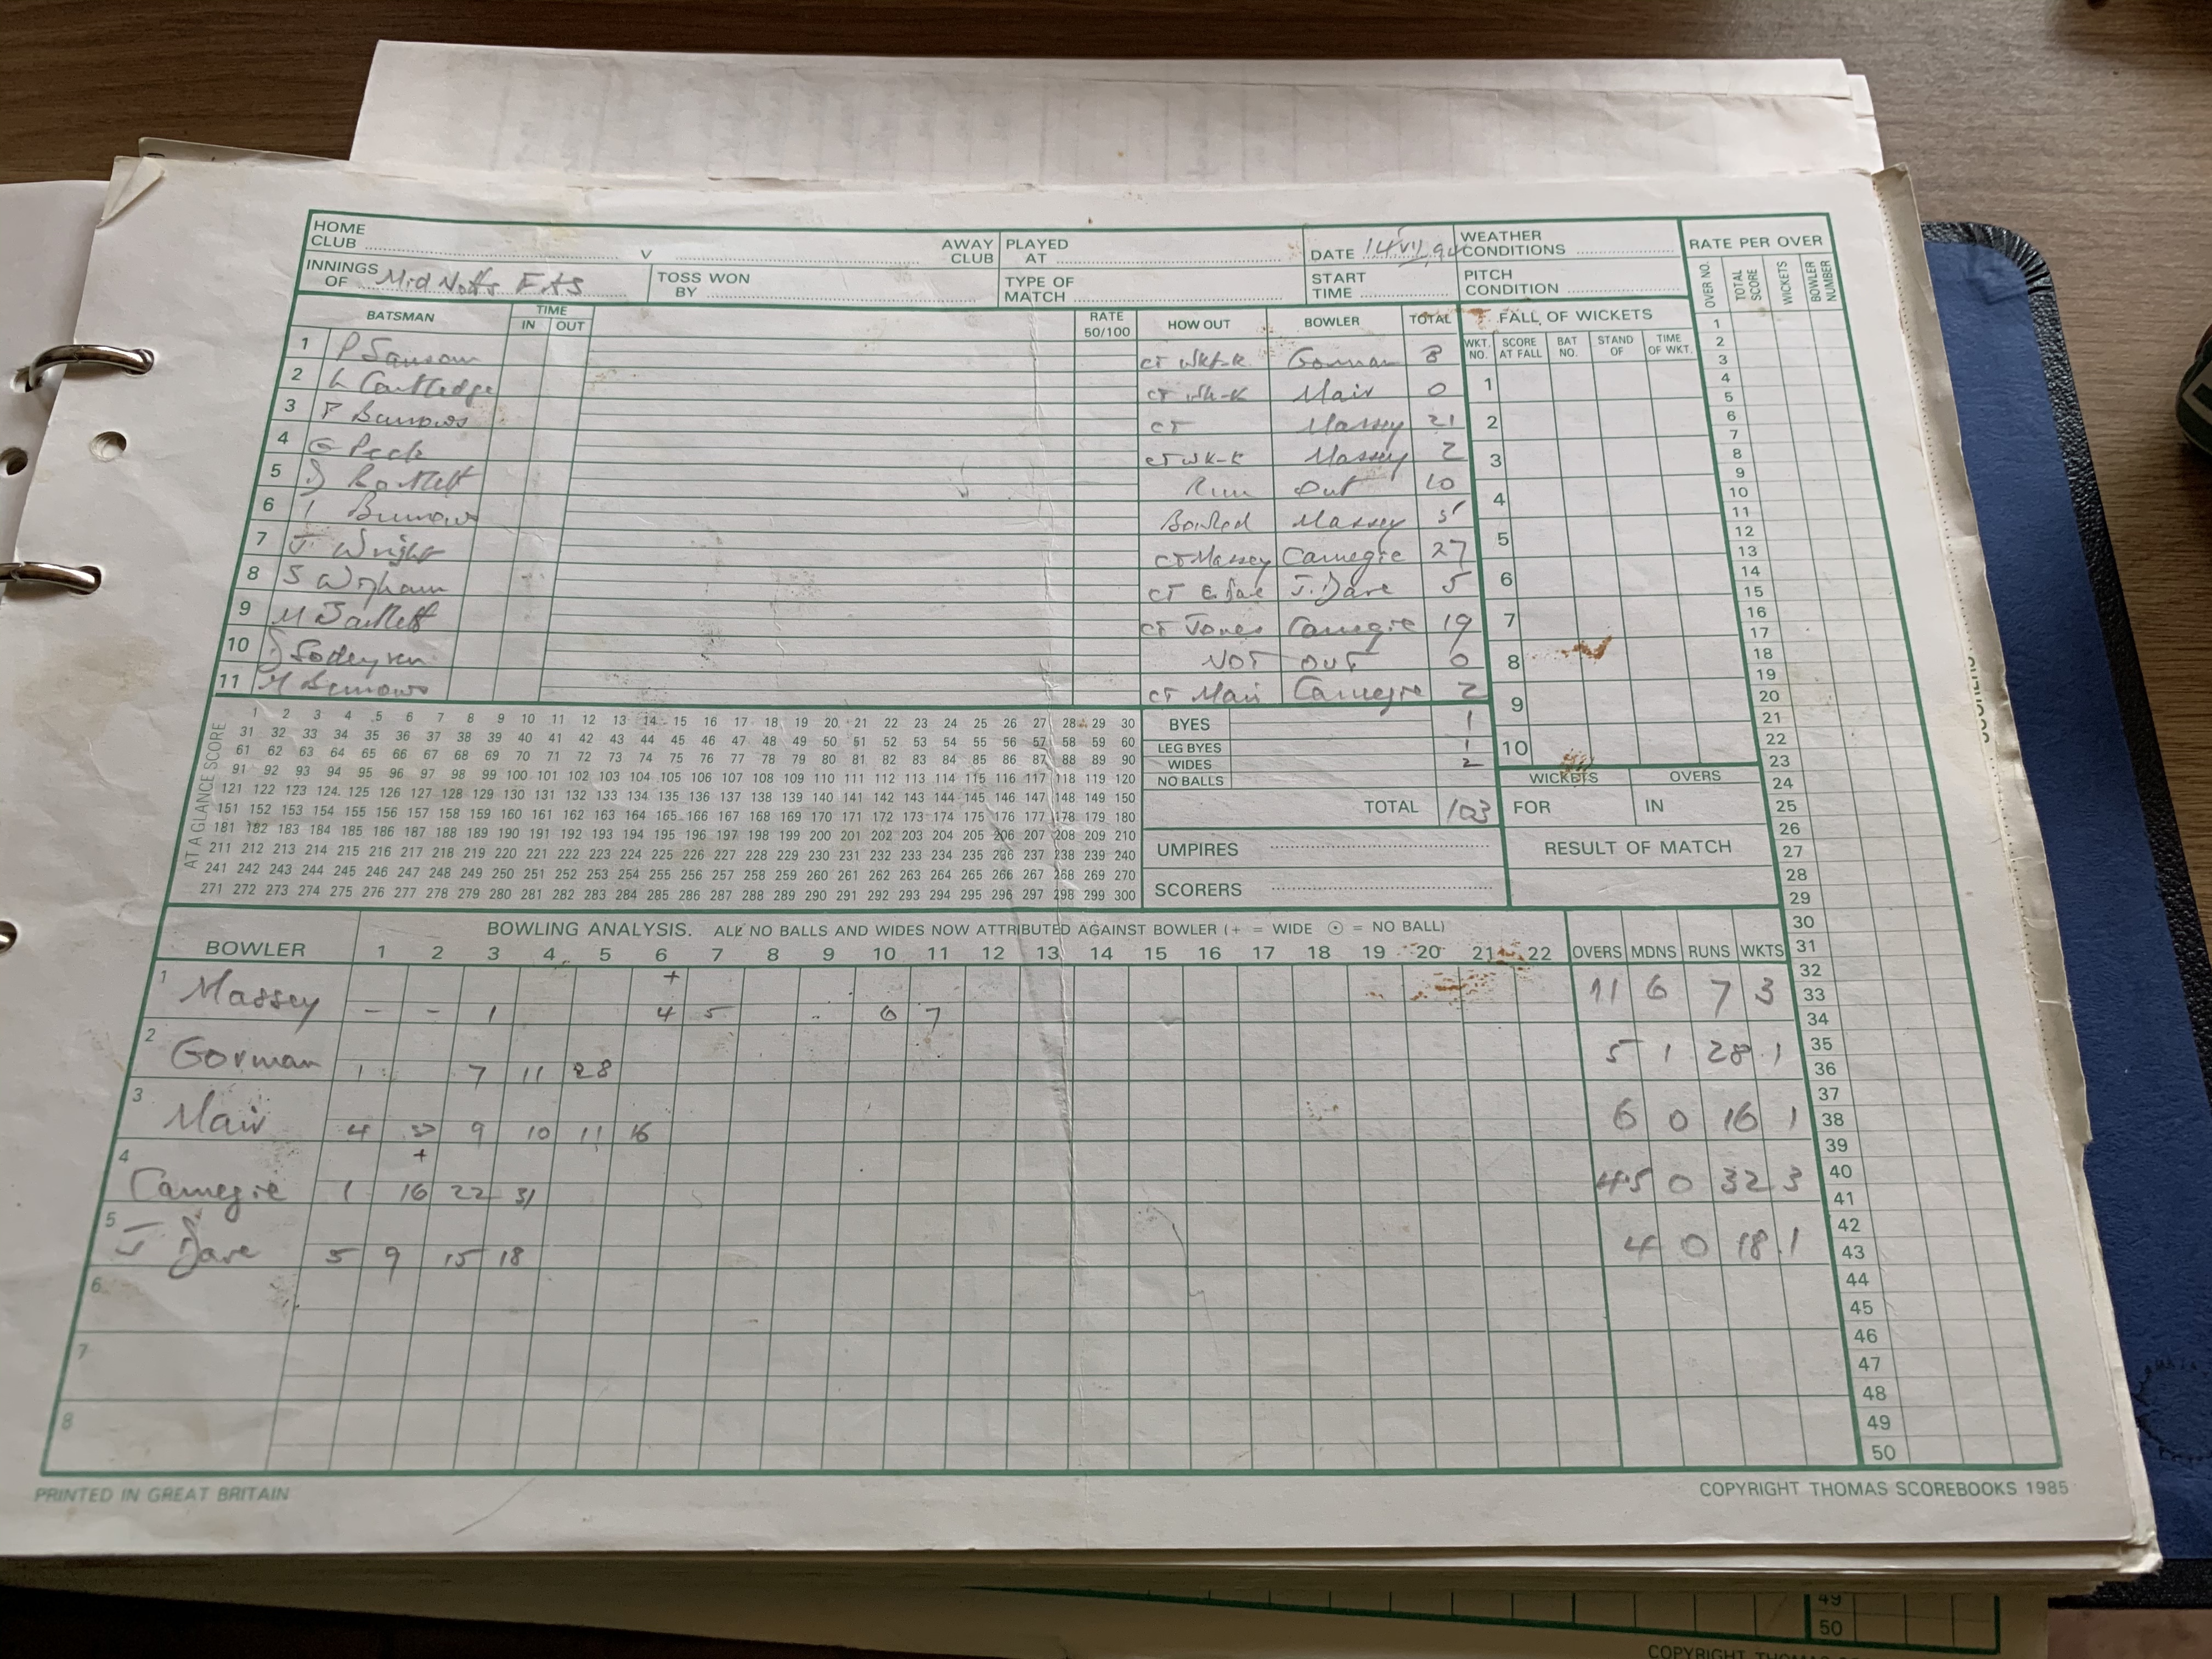 HOME CLUB V AWAY CLUB PLAYED AT DATE 14.VII.94 WEATHER CONDITIONS RATE PER OVER
INNINGS OF Mid Notts FAS TOSS WON BY TYPE OF MATCH START TIME PITCH CONDITION OVER NO. TOTAL SCORE WICKETS BOWLER NUMBER
BATSMAN TIME IN OUT RATE 50/100 HOW OUT BOWLER TOTAL FALL OF WICKETS
WKT. NO. SCORE AT FALL BAT NO. STAND OF TIME OF WKT.
1 P Sansom ct Wkt-K Gorman 8
2 ct Wk-K Mair 0
3 Burrows ct Massey 21
4 G Peck ct Wk-K Massey 2
5 Bartlett Run Out 10
6 Burrows Bowled Massey 5
7 J. Wright ct Massey Carnegie 27
8 S Wigham ct E. Dare J. Dare 5
9 M Bartlett ct Jones Carnegie 19
10 NOT OUT 0
11 M Burrows ct Mair Carnegie 2
1
2
3
4
5
6
7
8
9
10
AT A GLANCE SCORE
1 2 3 4 5 6 7 8 9 10 11 12 13 14 15 16 17 18 19 20 21 22 23 24 25 26 27 28 29 30
31 32 33 34 35 36 37 38 39 40 41 42 43 44 45 46 47 48 49 50 51 52 53 54 55 56 57 58 59 60
61 62 63 64 65 66 67 68 69 70 71 72 73 74 75 76 77 78 79 80 81 82 83 84 85 86 87 88 89 90
91 92 93 94 95 96 97 98 99 100 101 102 103 104 105 106 107 108 109 110 111 112 113 114 115 116 117 118 119 120
121 122 123 124 125 126 127 128 129 130 131 132 133 134 135 136 137 138 139 140 141 142 143 144 145 146 147 148 149 150
151 152 153 154 155 156 157 158 159 160 161 162 163 164 165 166 167 168 169 170 171 172 173 174 175 176 177 178 179 180
181 182 183 184 185 186 187 188 189 190 191 192 193 194 195 196 197 198 199 200 201 202 203 204 205 206 207 208 209 210
211 212 213 214 215 216 217 218 219 220 221 222 223 224 225 226 227 228 229 230 231 232 233 234 235 236 237 238 239 240
241 242 243 244 245 246 247 248 249 250 251 252 253 254 255 256 257 258 259 260 261 262 263 264 265 266 267 268 269 270
271 272 273 274 275 276 277 278 279 280 281 282 283 284 285 286 287 288 289 290 291 292 293 294 295 296 297 298 299 300
BYES 1
LEG BYES 1
WIDES 2
NO BALLS
TOTAL 103
UMPIRES
SCORERS
WICKETS OVERS
FOR IN
RESULT OF MATCH
BOWLING ANALYSIS. ALL NO BALLS AND WIDES NOW ATTRIBUTED AGAINST BOWLER (+ = WIDE ⊙ = NO BALL)
BOWLER 1 2 3 4 5 6 7 8 9 10 11 12 13 14 15 16 17 18 19 20 21 22 OVERS MDNS RUNS WKTS
1 Massey - - 1 + 4 5 6 7 11 6 7 3
2 Gorman 1 7 11 28 5 1 28 1
3 Mair 4 9 10 11 16 6 0 16 1
4 Carnegie 1 + 16 22 31 4.5 0 32 3
5 J Dare 5 9 15 18 4 0 18 1
6
7
8
1
2
3
4
5
6
7
8
9
10
11
12
13
14
15
16
17
18
19
20
21
22
23
24
25
26
27
28
29
30
31
32
33
34
35
36
37
38
39
40
41
42
43
44
45
46
47
48
49
50
PRINTED IN GREAT BRITAIN COPYRIGHT THOMAS SCOREBOOKS 1985
49
50